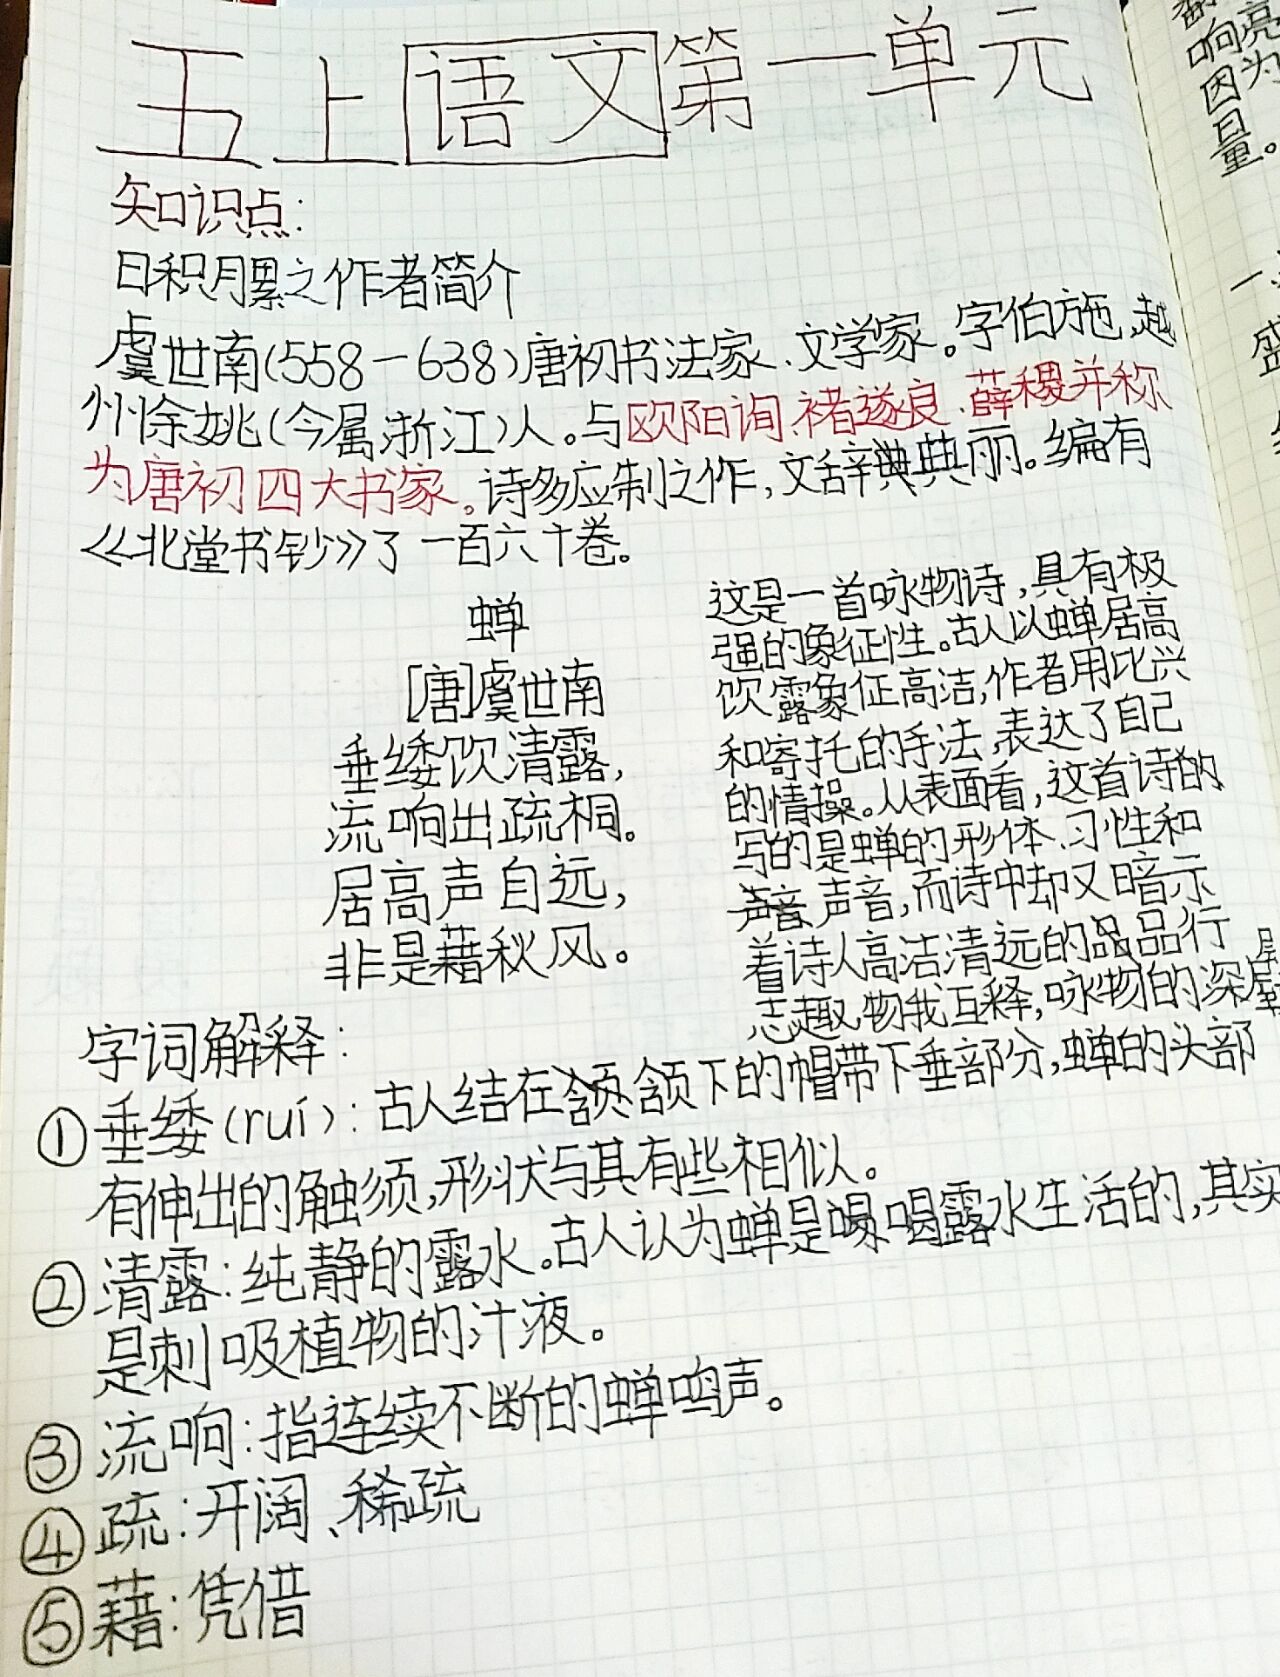 五上语文第一单元
知识点:
日积月累之作者简介
虞世南(558-638)唐初书法家、文学家。字伯施,越
州馀姚(今属浙江)人。与欧阳询、褚遂良、薛稷并称
为唐初四大书家。诗多应制之作,文辞典典丽。编有
《北堂书钞》了一百六十卷。
蝉
[唐]虞世南
垂緌饮清露,
流响出疏桐。
居高声自远,
非是藉秋风。
这是一首咏物诗,具有极
强的象征性。古人以蝉居高
饮露象征高洁,作者用比兴
和寄托的手法,表达了自己
的情操。从表面看,这首诗的
写的是蝉的形体、习性和
声音声音,而诗中却又暗示
着诗人高洁清远的品品行
志趣,物我互释,咏物的深层
字词解释:
①垂緌(ruí):古人结在颔颔下的帽带下垂部分,蝉的头部
有伸出的触须,形状与其有些相似。
②清露:纯静的露水。古人认为蝉是喝喝露水生活的,其实
是刺吸植物的汁液。
③流响:指连续不断的蝉鸣声。
④疏:开阔、稀疏
⑤藉:凭借
响亮
因为
量。